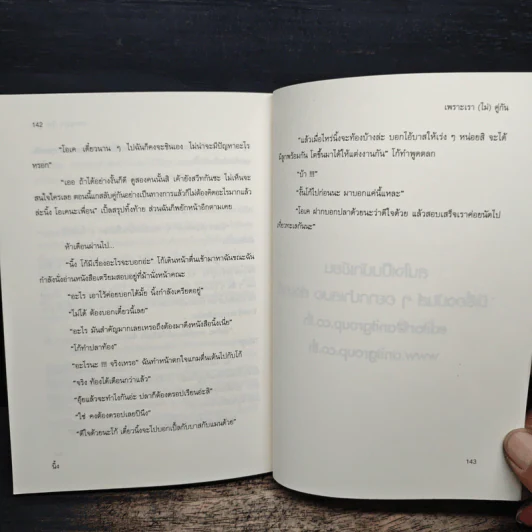 142
"โอเค เดี๋ยวนาน ๆ ไปฉันก็คงจะชินเอง ไม่น่าจะมีปัญหาอะไร
หรอก"
"เออ ถ้าได้อย่างงั้นก็ดี ดูสองคนนั้นสิ เค้ายังสวีทกันซะ ไม่เห็นจะ
สนใจใครเลย ตอนนี้แกกลับคู่กันอย่างเป็นทางการแล้วก็ไม่ต้องคิดอะไรมากแล้ว
ล่ะนิ้ง โอเคนะเพื่อน" เปิ้ลสรุปทิ้งท้าย ส่วนฉันก็พยักหน้าอีกตามเคย
ห้าเดือนผ่านไป...
"นิ้ง โก้มีเรื่องอะไรจะบอกอ่ะ" โก้เดินหน้าตื่นเข้ามาหาฉันขณะฉัน
กำลังนั่งอ่านหนังสือเตรียมสอบอยู่ที่ม้านั่งหน้าคณะ
"อะไร เอาไว้ค่อยบอกได้มั้ย นิ้งกำลังเครียดอยู่"
"ไม่ได้ ต้องบอกเดี๋ยวนี้เลย"
"อะไร มันสำคัญมากเลยเหรอถึงต้องมาดึงหนังสือนิ้งเนี่ย"
"โก้ทำปลาท้อง"
"อะไรนะ !!! จริงเหรอ" ฉันทำหน้าตกใจแกมตื่นเต้นไปกับโก้
"จริง ท้องได้เดือนกว่าแล้ว"
"อุ๊ยแล้วจะทำไงกันอ่ะ ปลาก็ต้องดรอปเรียนอ่ะสิ"
"ใช่ คงต้องดรอปเลยปีนึง"
"ดีใจด้วยนะโก้ เดี๋ยวนิ้งจะไปบอกเปิ้ลกับบาสกับแมนด้วย"
นิ้ง
เพราะเรา (ไม่) คู่กัน
"แล้วเมื่อไหร่นิ้งจะท้องบ้างล่ะ บอกไอ้บาสให้เร่ง ๆ หน่อยสิ จะได้
มีลูกพร้อมกัน โตขึ้นมาได้ให้แต่งงานกัน" โก้ทำพูดตลก
"บ้า !!!"
"งั้นโก้ไปก่อนนะ มาบอกแค่นี้แหละ"
"โอเค ฝากบอกปลาด้วยนะว่าดีใจด้วย แล้วสอบเสร็จเราค่อยนัดไป
เที่ยวทะเลกันนะ"
143